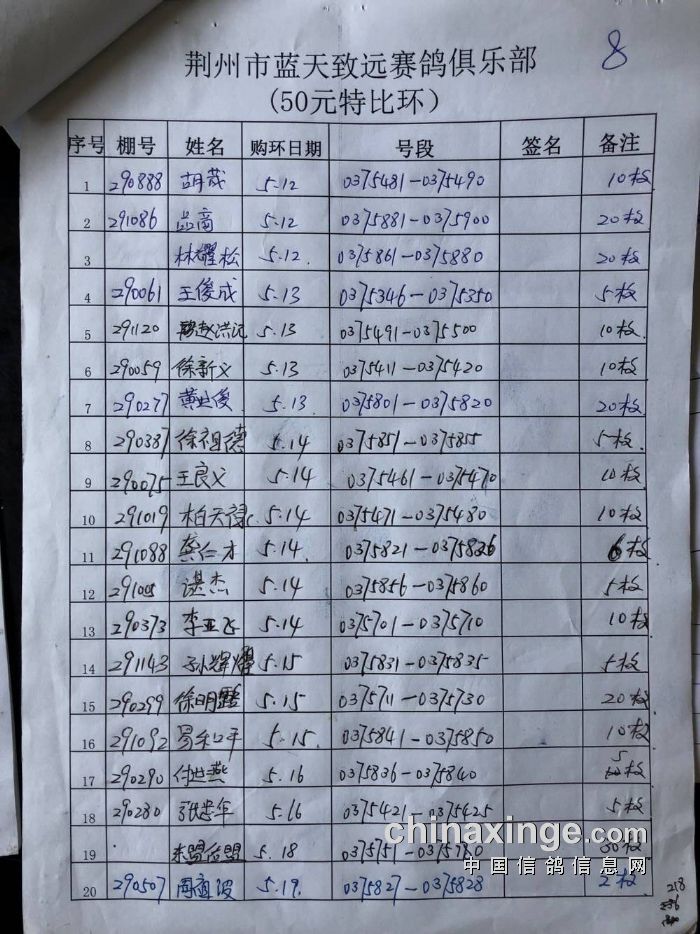 8
荆州市蓝天致远赛鸽俱乐部
(50元特比环)
序号 棚号 姓名 购环日期 号段 签名 备注
1 290888 胡茂 5.12 0375481-0375490 10枚
2 291086 5.12 0375881-0375900 20枚
3 林耀松 5.12. 0375861-0375880 20枚
4 290061 王俊成 5.13 0375346-0375350 5枚
5 291120 赵洪记 5.13 0375491-0375500 10枚
6 290059 徐新义 5.13 0375411-0375420 10枚
7 290277 黄世俊 5.13. 0375801-0375820 20枚
8 290387 徐祖德 5.14 0375851-0375855 5枚
9 290075 王良义 5.14 0375461-0375470 10枚
10 291019 柏天禄 5.14 0375471-0375480 10枚
11 291088 龚仁才 5.14. 0375821-0375826 6枚
12 谌杰 5.14 0375856-0375860 5枚
13 290373 李亚飞 5.14 0375701-0375710 10枚
14 291143 孙辉耀 5.15 0375831-0375835 5枚
15 290299 徐明 5.15 0375711-0375730 20枚
16 291092 罗和平 5.15. 0375841-0375850 10枚
17 290290 付世燕 5.16 0375836-0375840 5枚
18 290280 张忠年 5.16 0375421-0375425 5枚
19 5.18 0375751-0375780 30枚
20 290507 周宜波 5.19. 0375827-0375828 2枚
chinaxinge.com
中国信鸽信息网
218